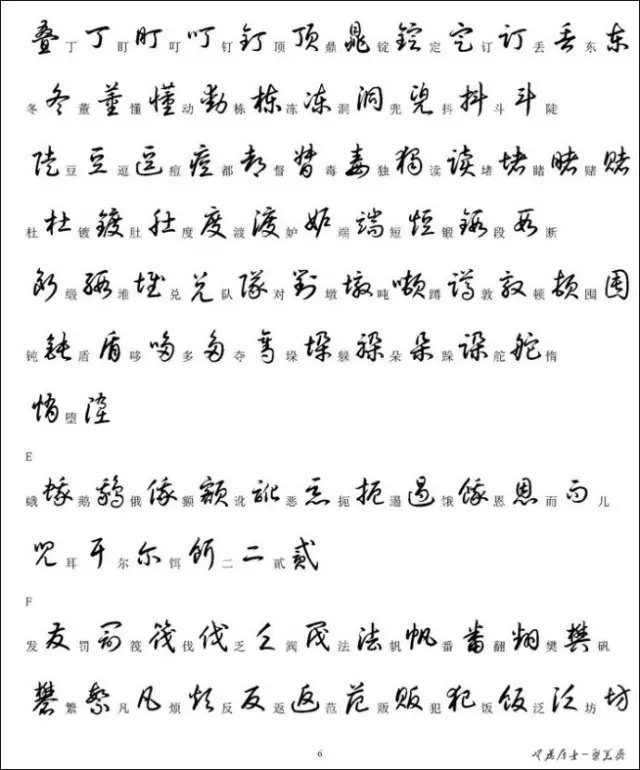 叠 丁 丁 盯 盯 叮 叮 钉 釘 顶 顶 鼎 鼎 锭 錠 定 定 订 订 丢 丢 东 东
冬 冬 董 董 懂 懂 动 動 栋 栋 冻 冻 洞 洞 兜 兜 抖 抖 斗 斗 陡
陡 豆 豆 逗 逗 痘 痘 都 都 督 督 毒 毒 独 獨 读 读 堵 堵 睹 睹 赌 赌
杜 杜 镀 鍍 肚 肚 度 度 渡 渡 妒 妒 端 端 短 短 锻 鍛 段 段 断
断 缎 缎 堆 堆 兑 兑 队 隊 对 對 墩 墩 吨 噸 蹲 蹲 敦 敦 顿 顿 囤 囤
钝 鈍 盾 盾 哆 哆 多 多 夺 奪 垛 垛 躲 躲 朵 朵 跺 跺 舵 舵 惰
惰 堕 堕
E
蛾 蛾 鹅 鹅 俄 俄 额 额 讹 訛 恶 恶 扼 扼 遏 遏 饿 饿 恩 恩 而 而 儿
兒 耳 耳 尔 尔 饵 饵 二 二 贰 貳
F
发 发 罚 罚 筏 筏 伐 伐 乏 乏 阀 阀 法 法 帆 帆 番 番 翻 翻 樊 樊 矾
礬 繁 繁 凡 凡 烦 烦 反 反 返 返 范 范 贩 贩 犯 犯 饭 饭 泛 泛 坊 坊
6